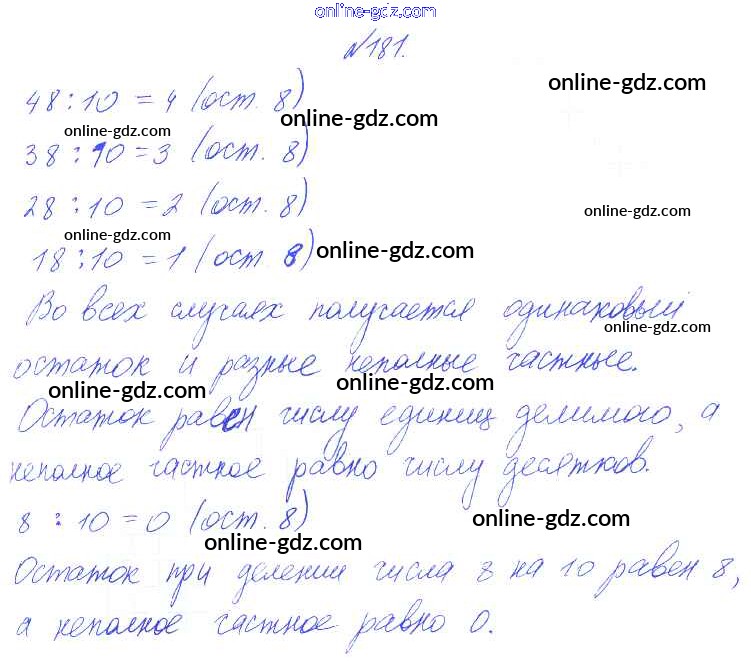 online-gdz.com
№181.
48 : 10 = 4 (ост. 8)
online-gdz.com
online-gdz.com
online-gdz.com
38 : 10 = 3 (ост. 8)
28 : 10 = 2 (ост. 8)
online-gdz.com
online-gdz.com
18 : 10 = 1 (ост. 8)
online-gdz.com
Во всех случаях получается одинаковый
online-gdz.com
остаток и разные неполные частные.
online-gdz.com
online-gdz.com
Остаток равен числу единиц делимого, а
неполное частное равно числу десятков.
8 : 10 = 0 (ост. 8)
online-gdz.com
online-gdz.com
Остаток при делении числа 8 на 10 равен 8,
а неполное частное равно 0.